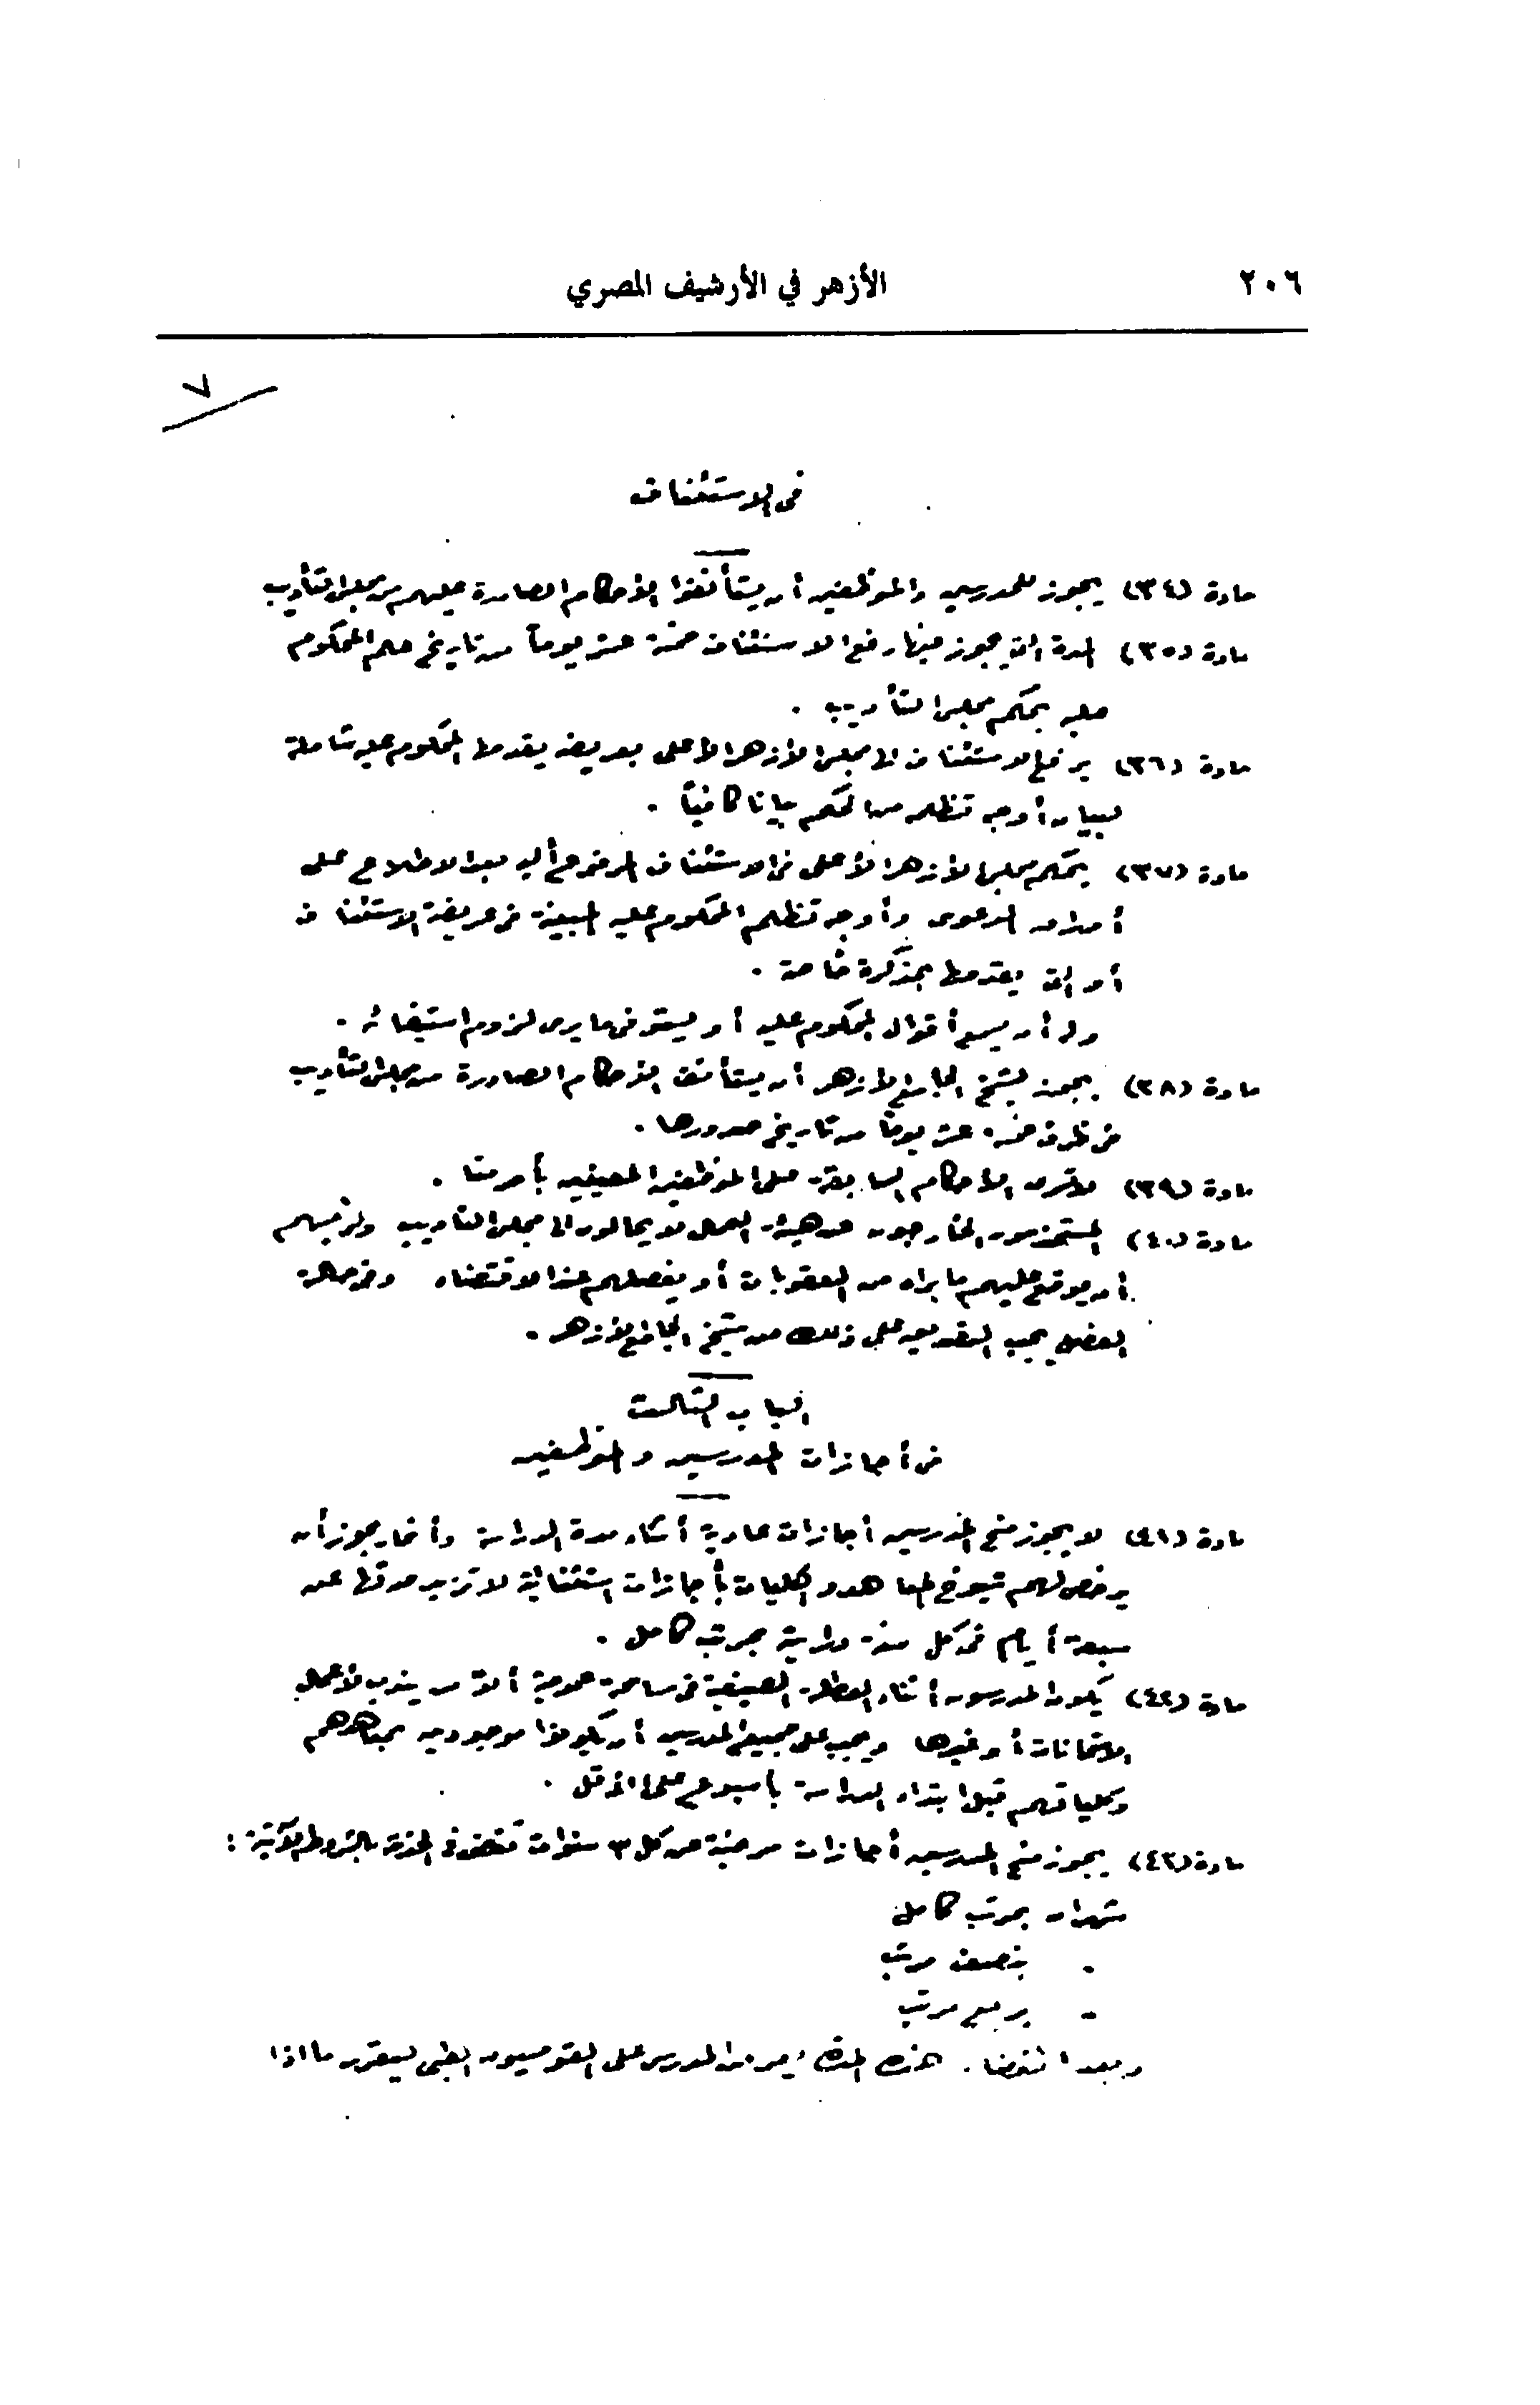 ٢٠٦
الأزهر في الأرشيف المصري
٧
فى الاستئناف
مادة (٣٤) يجوز للمدرسين والموظفين أن يستأنفوا الأحكام الصادرة عليهم من مجلس التأديب
مادة (٣٥) المدة التى يجوز فيها رفع الاستئناف خمسة عشر يوماً من تاريخ علم المحكوم
عليه بحكم مجلس التأديب .
مادة (٣٦) يرفع الاستئناف الى مجلس الأزهر الأعلى بعريضة يقدمها المحكوم عليه شاملة
لبيان أوجه تظلمه من الحكم بيانا كافياً .
مادة (٣٧) يحكم مجلس الأزهر الأعلى فى الاستئناف المرفوع أليه بعد الاطلاع على
أوراق الدعوى وأوجه تظلم المحكوم عليه المبينة فى عريضة الاستئناف
أو التى يقدمها بمذكرة خاصة .
وله أن يسمع أقوال المحكوم عليه أو يستوفى ما يرى لزوم استيفائه .
مادة (٣٨) يجوز لشيخ الجامع الأزهر أن يستأنف الأحكام الصادرة من مجلس التأديب
فى ظرف خمسة عشر يوماً من تاريخ صدورها .
مادة (٣٩) لا تسرى الأحكام السابقة على الموظفين المعينين بأمر منا .
مادة (٤٠) المستخدمون الخارجون عن هيئة العمال لا يحالون الى مجلس التأديب ولرئيسهم
أن يوقع عليهم ما يراه من العقوبات أو يفصلهم عند الاقتضاء وفى حالة
الفصل يجب التصديق على ذلك من شيخ الجامع الأزهر .
الباب الثالث
فى أجازات المدرسين والموظفين
مادة (٤١) لا يجوز منح المدرسين أجازات عادية أثناء مدة الدراسة وأنما يجوز أن
يرخص لهم شيوخ المعاهد والكليات بأجازات استثنائية لا تزيد مدتها عن
سبعة أيام فى كل سنة دراسية بمرتب كامل .
مادة (٤٢) يكون المدرسون أثناء العطلة الصيفية فى مسامحة عمومية ألا من يندب لأعمال
الامتحانات أو غيرها ويجب على جميع المدرسين أن يكونوا موجودين بمعاهدهم
وكلياتهم قبل ابتداء الدراسة بأسبوع على الأقل .
مادة (٤٣) يجوز منح المدرسين أجازات مرضية عن كل ٣ سنوات تنقضى فى الخدمة بالشروط الآتية :
شهران بمرتب كامل
- بنصف مرتب
- بربع مرتب
وبعد انقضاء هذه المدة يعرض المدرس على القومسيون الطبى ليقرر ما اذا